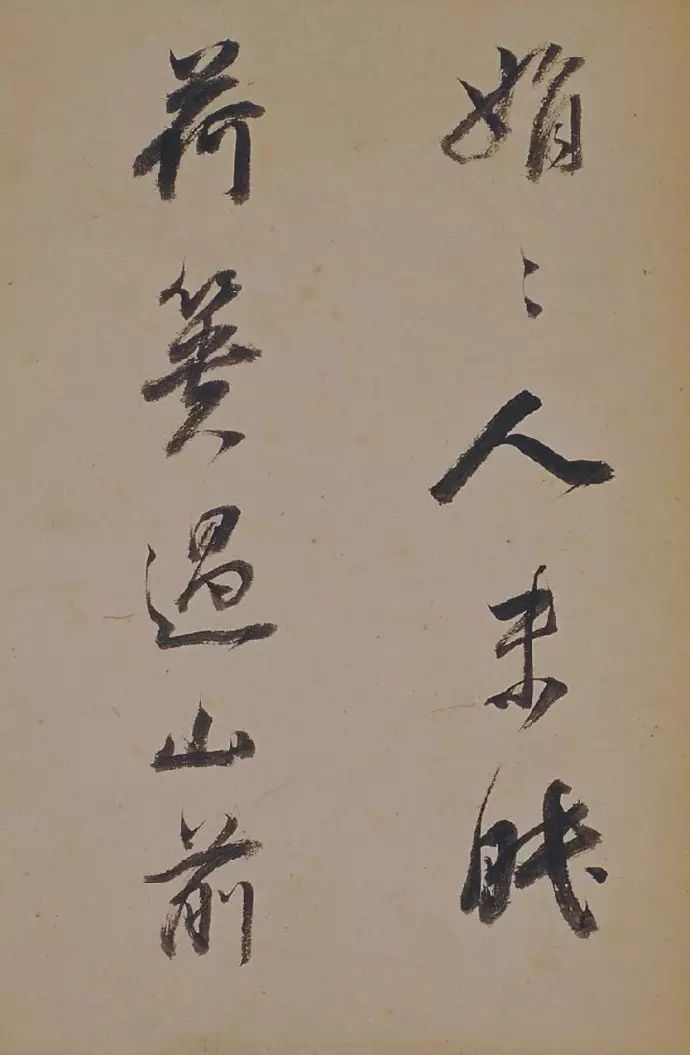 娟〻人未眠
荷蕢過山前